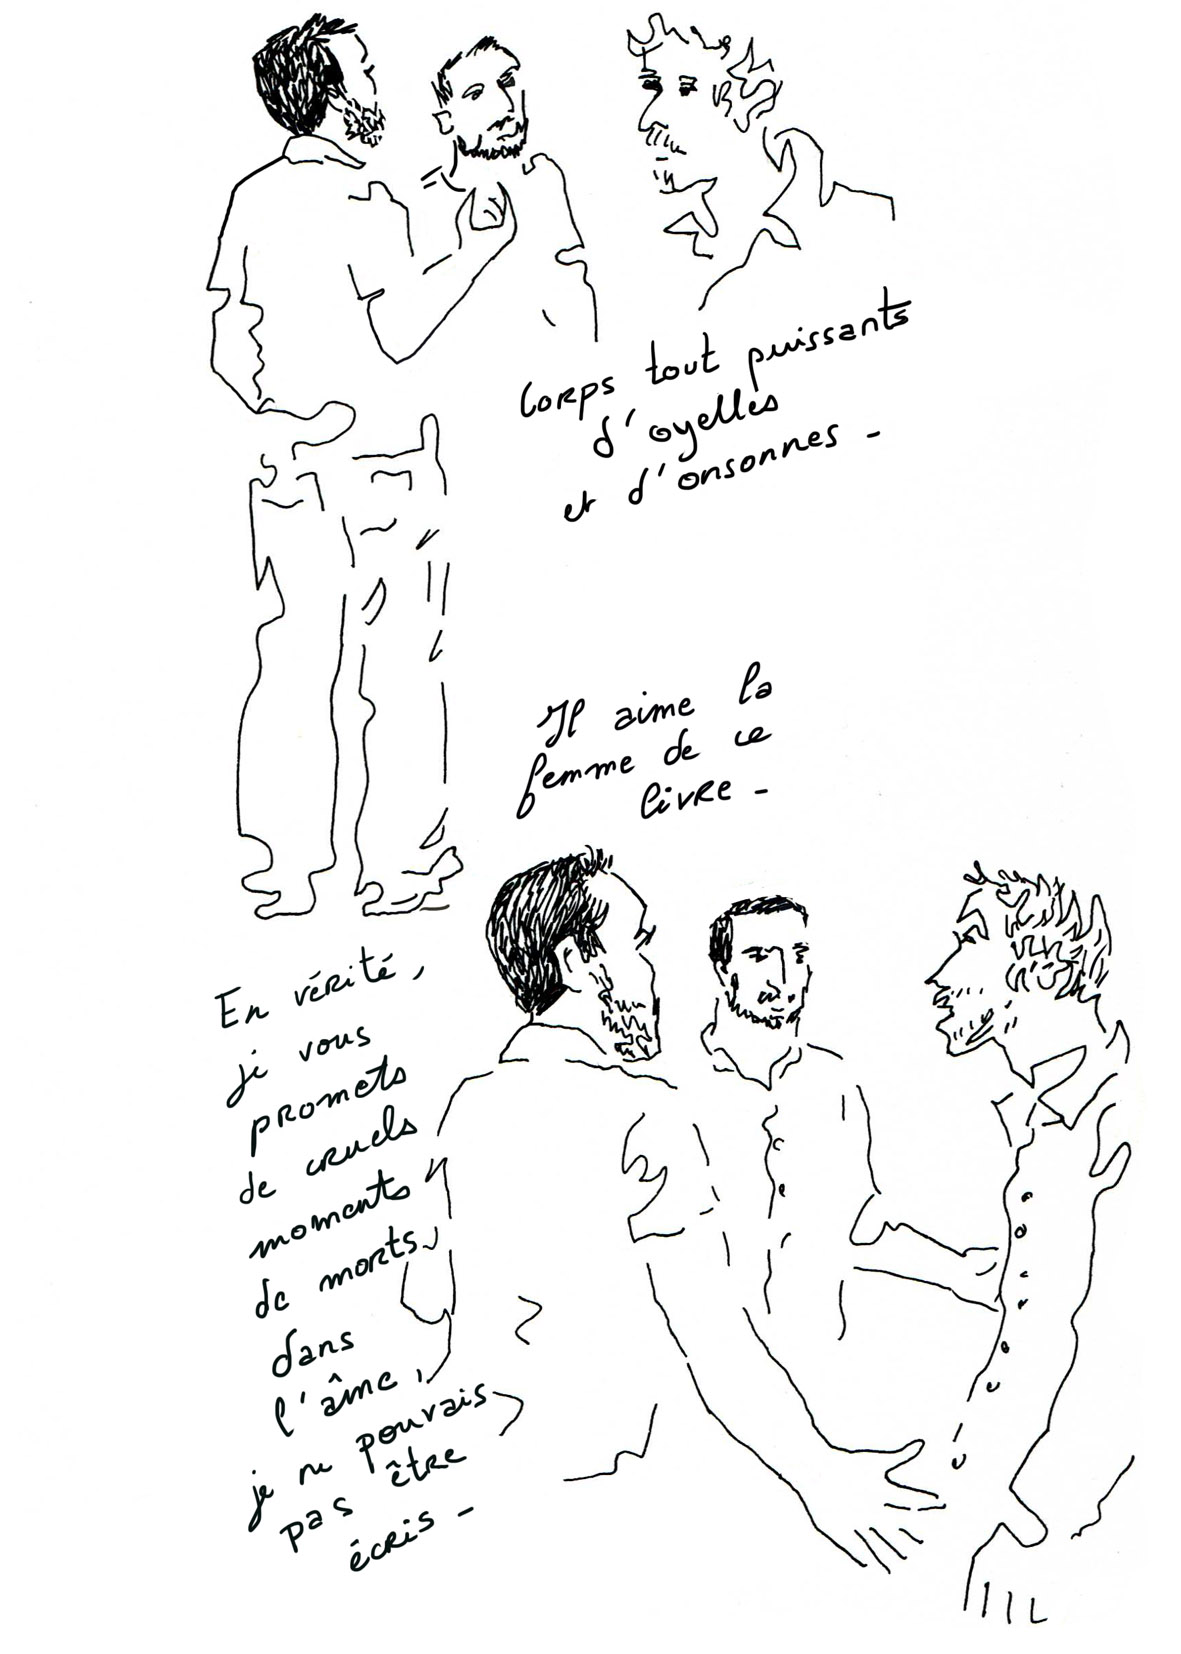 Corps tout puissants
d'oyelles
et d'onsonnes -
Il aime la
femme de ce
livre -
En vérité,
je vous
promets
de cruels
moments
de morts
dans
l'âme,
je ne pouvais
pas être
écris -